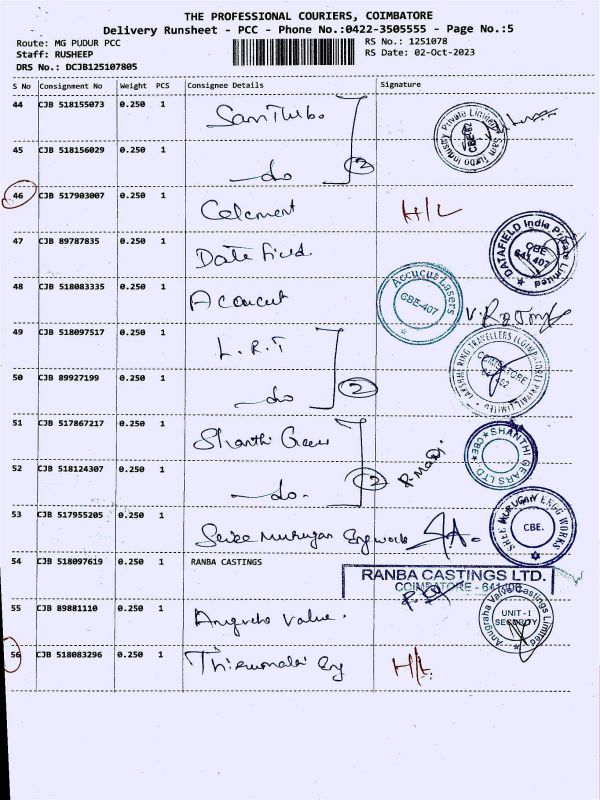 THE PROFESSIONAL COURIERS, COIMBATORE
Delivery Runsheet - PCC - Phone No.:0422-3505555 - Page No.:5
Route: MG PUDUR PCC
RS No.: 1251078
Staff: RUSHEEP
RS Date: 02-Oct-2023
DRS No.: DCJB125107805
S No Consignment No Weight PCS Consignee Details Signature
44 CJB 518155073 0.250 1 Sam Turbo
Sam Turbo Industry Private Limited
45 CJB 518156029 0.250 1 do 2
46 CJB 517903007 0.250 1 Celement H/L
47 CJB 89787835 0.250 1 Datafield
DATAFIELD India Private Limited
CBE
641 407
48 CJB 518083335 0.250 1 Accucut
Accucut Lasers
CBE-407
49 CJB 518097517 0.250 1 L.R.T
50 CJB 89927199 0.250 1 do 2
51 CJB 517867217 0.250 1 Shanthi Gears
SHANTHI GEARS LTD.
CBE
52 CJB 518124307 0.250 1 do. 2
53 CJB 517955205 0.250 1 Sree Murugan Engg works
SHREE MURUGAN ENGG WORKS
CBE.
54 CJB 518097619 0.250 1 RANBA CASTINGS
RANBA CASTINGS LTD.
COIMBATORE - 641406
55 CJB 89881110 0.250 1 Anugraha Valve.
Anugraha Valve Castings Limited
UNIT - I
SECURITY
56 CJB 518083296 0.250 1 Thirumalai Eng H/L